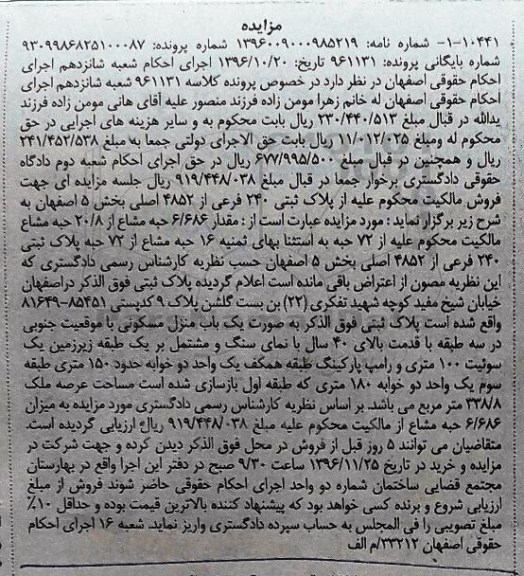 مزایده
۱-۱۰۴۴۱- شماره نامه: ۱۳۹۶۰۰۹۰۰۰۹۸۵۲۱۹ شماره پرونده: ۹۳۰۹۹۸۶۸۲۵۱۰۰۰۸۷
شماره بایگانی پرونده: ۹۶۱۱۳۱ تاریخ: ۱۳۹۶/۱۰/۲۰ اجرای احکام شعبه شانزدهم اجرای
احکام حقوقی اصفهان در نظر دارد در خصوص پرونده کلاسه ۹۶۱۱۳۱ شعبه شانزدهم اجرای
احکام حقوقی اصفهان له خانم زهرا مومن زاده فرزند منصور علیه آقای هانی مومن زاده فرزند
یدالله در قبال مبلغ ۲۳۰/۴۴۰/۵۱۳ ریال بابت محکوم به و سایر هزینه های اجرایی در حق
محکوم له ومبلغ ۱۱/۰۱۲/۰۲۵ ریال بابت حق الاجرای دولتی جمعا به مبلغ ۲۴۱/۴۵۲/۵۳۸
ریال و همچنین در قبال مبلغ ۶۷۷/۹۹۵/۵۰۰ ریال در حق اجرای احکام شعبه دوم دادگاه
حقوقی دادگستری برخوار جمعا در قبال مبلغ ۹۱۹/۴۴۸/۰۳۸ ریال جلسه مزایده ای جهت
فروش مالکیت محکوم علیه از پلاک ثبتی ۲۴۰ فرعی از ۴۸۵۲ اصلی بخش ۵ اصفهان به
شرح زیر برگزار نماید : مورد مزایده عبارت است از : مقدار ۶/۶۸۶ حبه مشاع از ۲۰/۸ حبه مشاع
مالکیت محکوم علیه از ۷۲ حبه به استثنا بهای ثمنیه ۱۶ حبه مشاع از ۷۲ حبه پلاک ثبتی
۲۴۰ فرعی از ۴۸۵۲ اصلی بخش ۵ اصفهان حسب نظریه کارشناس رسمی دادگستری که
این نظریه مصون از اعتراض باقی مانده است اعلام گردیده پلاک ثبتی فوق الذکر دراصفهان
خیابان شیخ مفید کوچه شهید تفکری (۲۲) بن بست گلشن پلاک ۹ کدپستی ۸۵۴۵۱-۸۱۶۴۹
واقع شده است پلاک ثبتی فوق الذکر به صورت یک باب منزل مسکونی با موقعیت جنوبی
در سه طبقه با قدمت بالای ۴۰ سال با نمای سنگ و مشتمل بر یک طبقه زیرزمین یک
سوئیت ۱۰۰ متری و رامپ پارکینگ طبقه همکف یک واحد دو خوابه حدود ۱۵۰ متری طبقه
سوم یک واحد دو خوابه ۱۸۰ متری که طبقه اول بازسازی شده است مساحت عرصه ملک
۳۳۸/۸ متر مربع می باشد. بر اساس نظریه کارشناس رسمی دادگستری مورد مزایده به میزان
۶/۶۸۶ حبه مشاع از مالکیت محکوم علیه مبلغ ۹۱۹/۴۴۸/۰۳۸ ریال ارزیابی گردیده است.
متقاضیان می توانند ۵ روز قبل از فروش در محل فوق الذکر دیدن کرده و جهت شرکت در
مزایده و خرید در تاریخ ۱۳۹۶/۱۱/۲۵ ساعت ۹/۳۰ صبح در دفتر این اجرا واقع در بهارستان
مجتمع قضایی ساختمان شماره دو واحد اجرای احکام حقوقی حاضر شوند فروش از مبلغ
ارزیابی شروع و برنده کسی خواهد بود که پیشنهاد کننده بالاترین قیمت بوده و حداقل ۱۰٪
مبلغ تصویبی را فی المجلس به حساب سپرده دادگستری واریز نماید. شعبه ۱۶ اجرای احکام
حقوقی اصفهان ۳۳۲۱۲/م الف